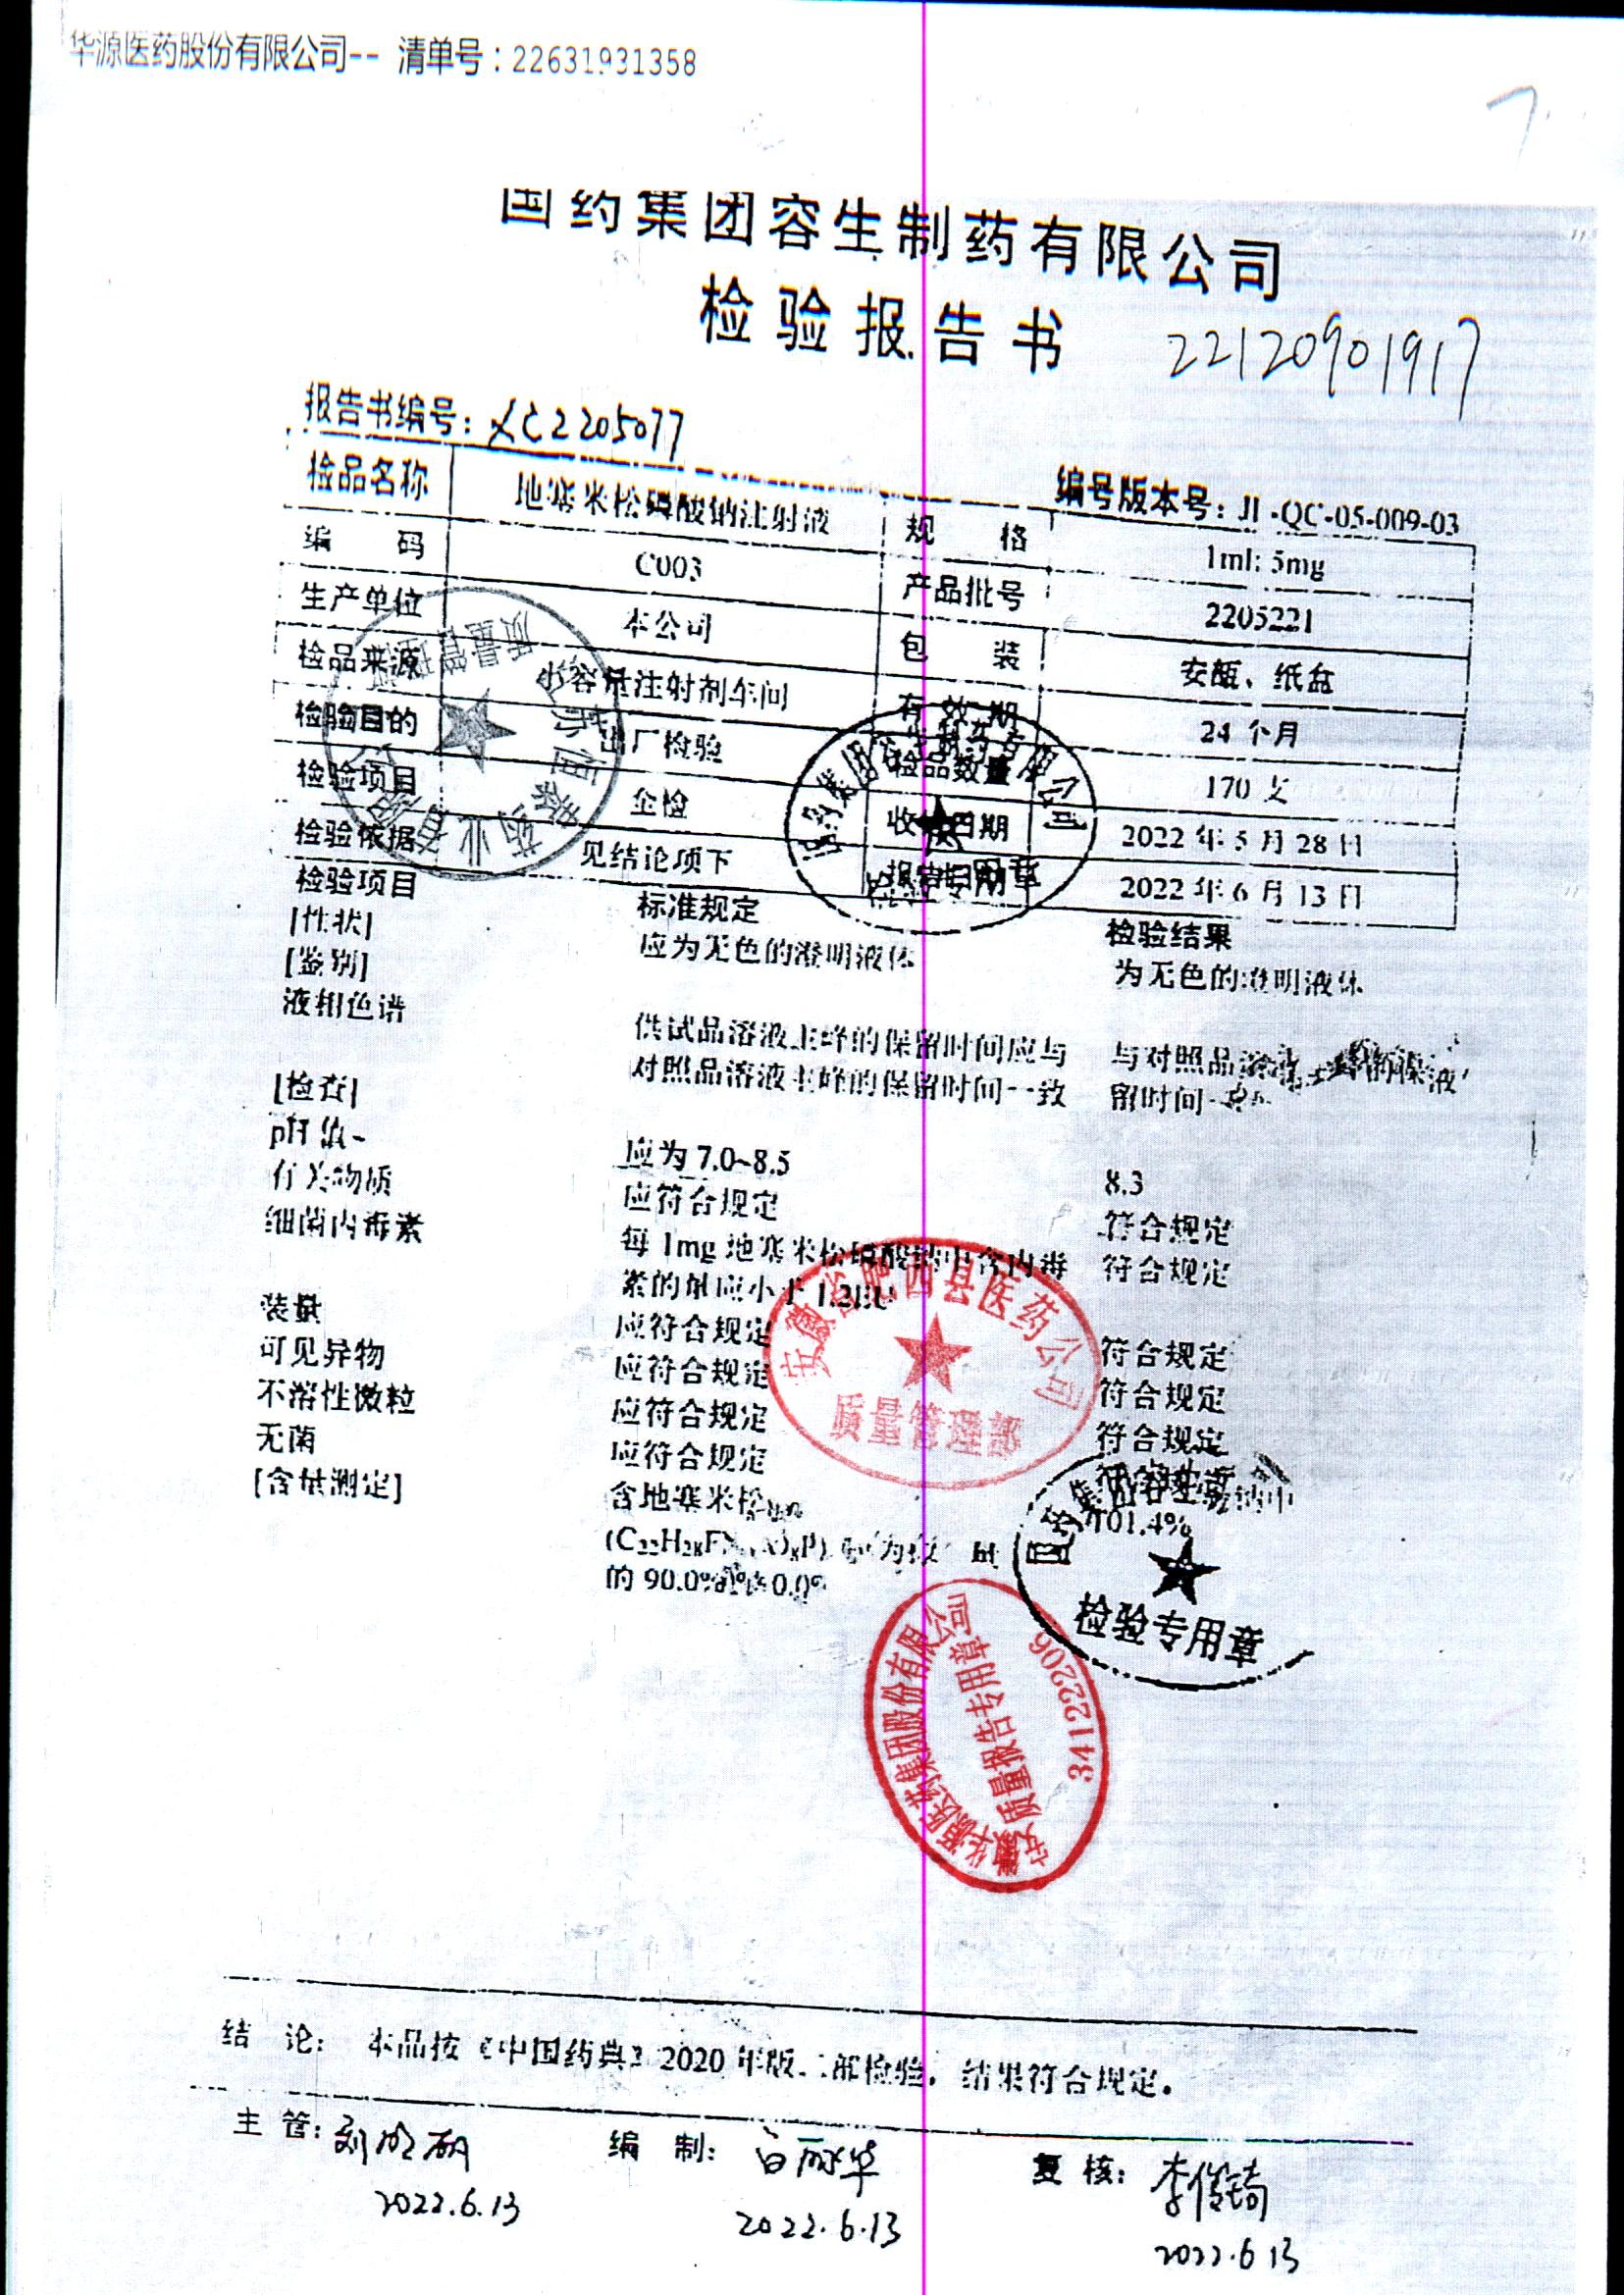 华源医药股份有限公司-- 清单号：22631931358
国药集团容生制药有限公司
检验报告书
22120901917
报告书编号：XC2205077
编号版本号：JL-QC-05-009-03
检品名称 地塞米松磷酸钠注射液 规 格 1ml: 5mg
编 码 C003 产品批号 2205221
生产单位 本公司 包 装 安瓿、纸盒
检品来源 小容量注射剂车间 有效期 24 个月
检验目的 出厂检验 检品数量 170 支
检验项目 全检 收检日期 2022 年 5 月 28 日
检验依据 见结论项下 报告日期 2022 年 6 月 13 日
检验项目 标准规定 检验结果
[性状] 应为无色的澄明液体 为无色的澄明液体
[鉴别]
液相色谱 供试品溶液主峰的保留时间应与 与对照品溶液主峰的保
对照品溶液主峰的保留时间一致 留时间一致
[检查]
pH 值 应为 7.0~8.5 8.3
有关物质 应符合规定 符合规定
细菌内毒素 每 1mg 地塞米松磷酸钠中含内毒 符合规定
素的量应小于 1.2EU
装量 应符合规定 符合规定
可见异物 应符合规定 符合规定
不溶性微粒 应符合规定 符合规定
无菌 应符合规定 符合规定
[含量测定] 含地塞米松 101.4%
的 90.0%
安徽省肥西县医药公司
质量管理部
国药集团容生制药有限公司
检验专用章
检验专用章
华源医药集团股份有限公司
质量报告专用章
341222206
结 论： 本品按《中国药典》2020 年版二部检验，结果符合规定。
主 管： 编 制： 复 核：
2022.6.13 2022.6.13 2022.6 13